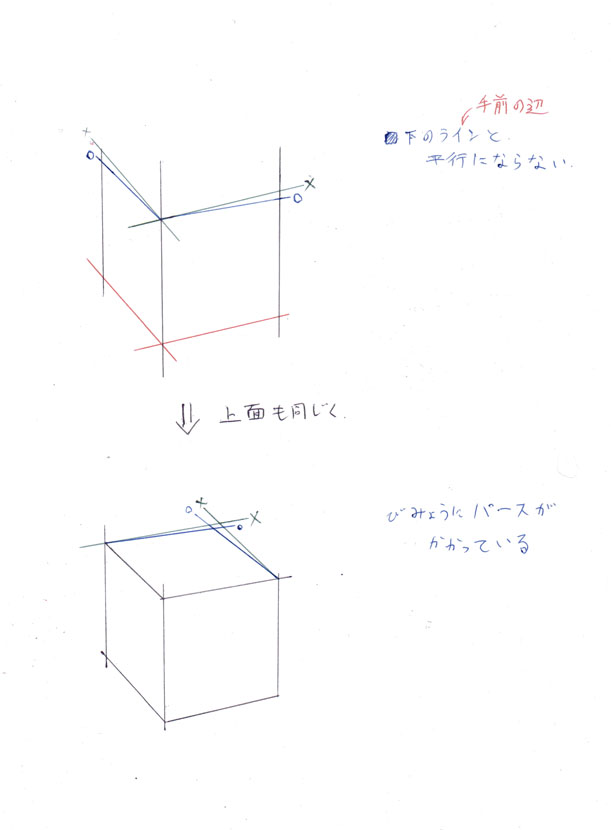 手前の辺
下のラインと、
平行にならない.
x
o
x
o
⇓ 上面も同じく.
o
x
x
o
びみょうにパースが
かかっている